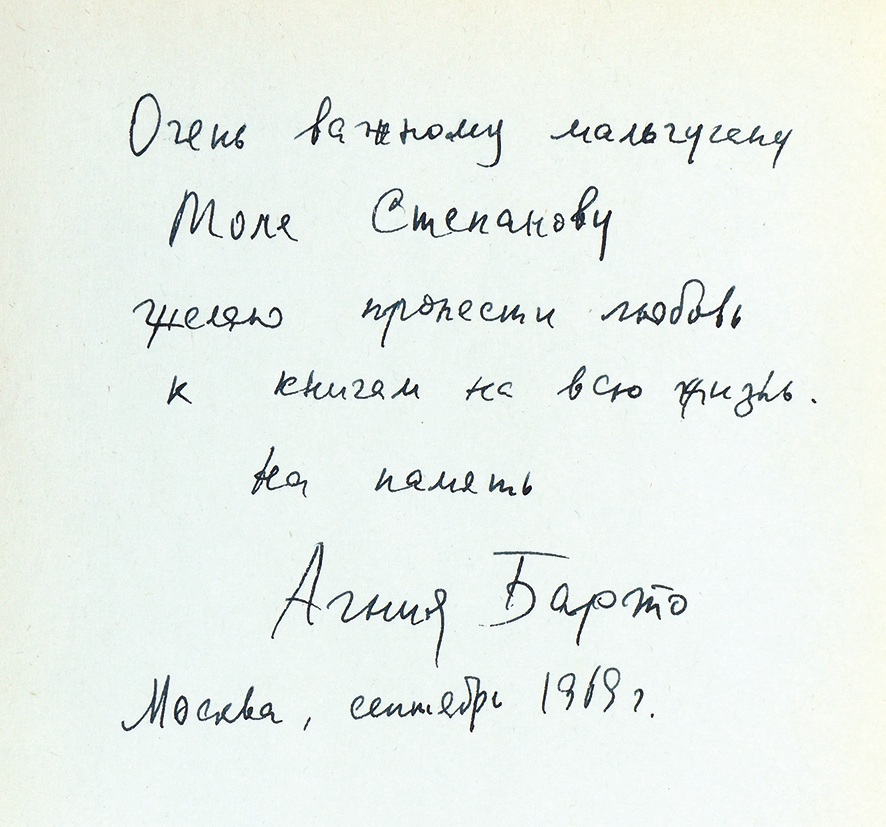 Очень важному мальчугану
Толе Степанову
желаю пронести любовь
к книгам на всю жизнь.
На память
Агния Барто
Москва, сентябрь 1969 г.